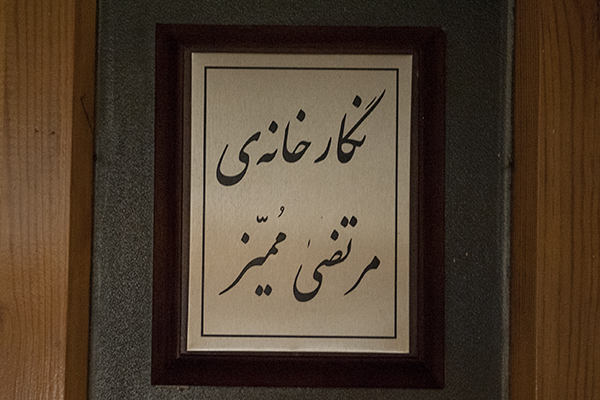 نگارخانه‌ی
مرتضیٰ مُمیّز